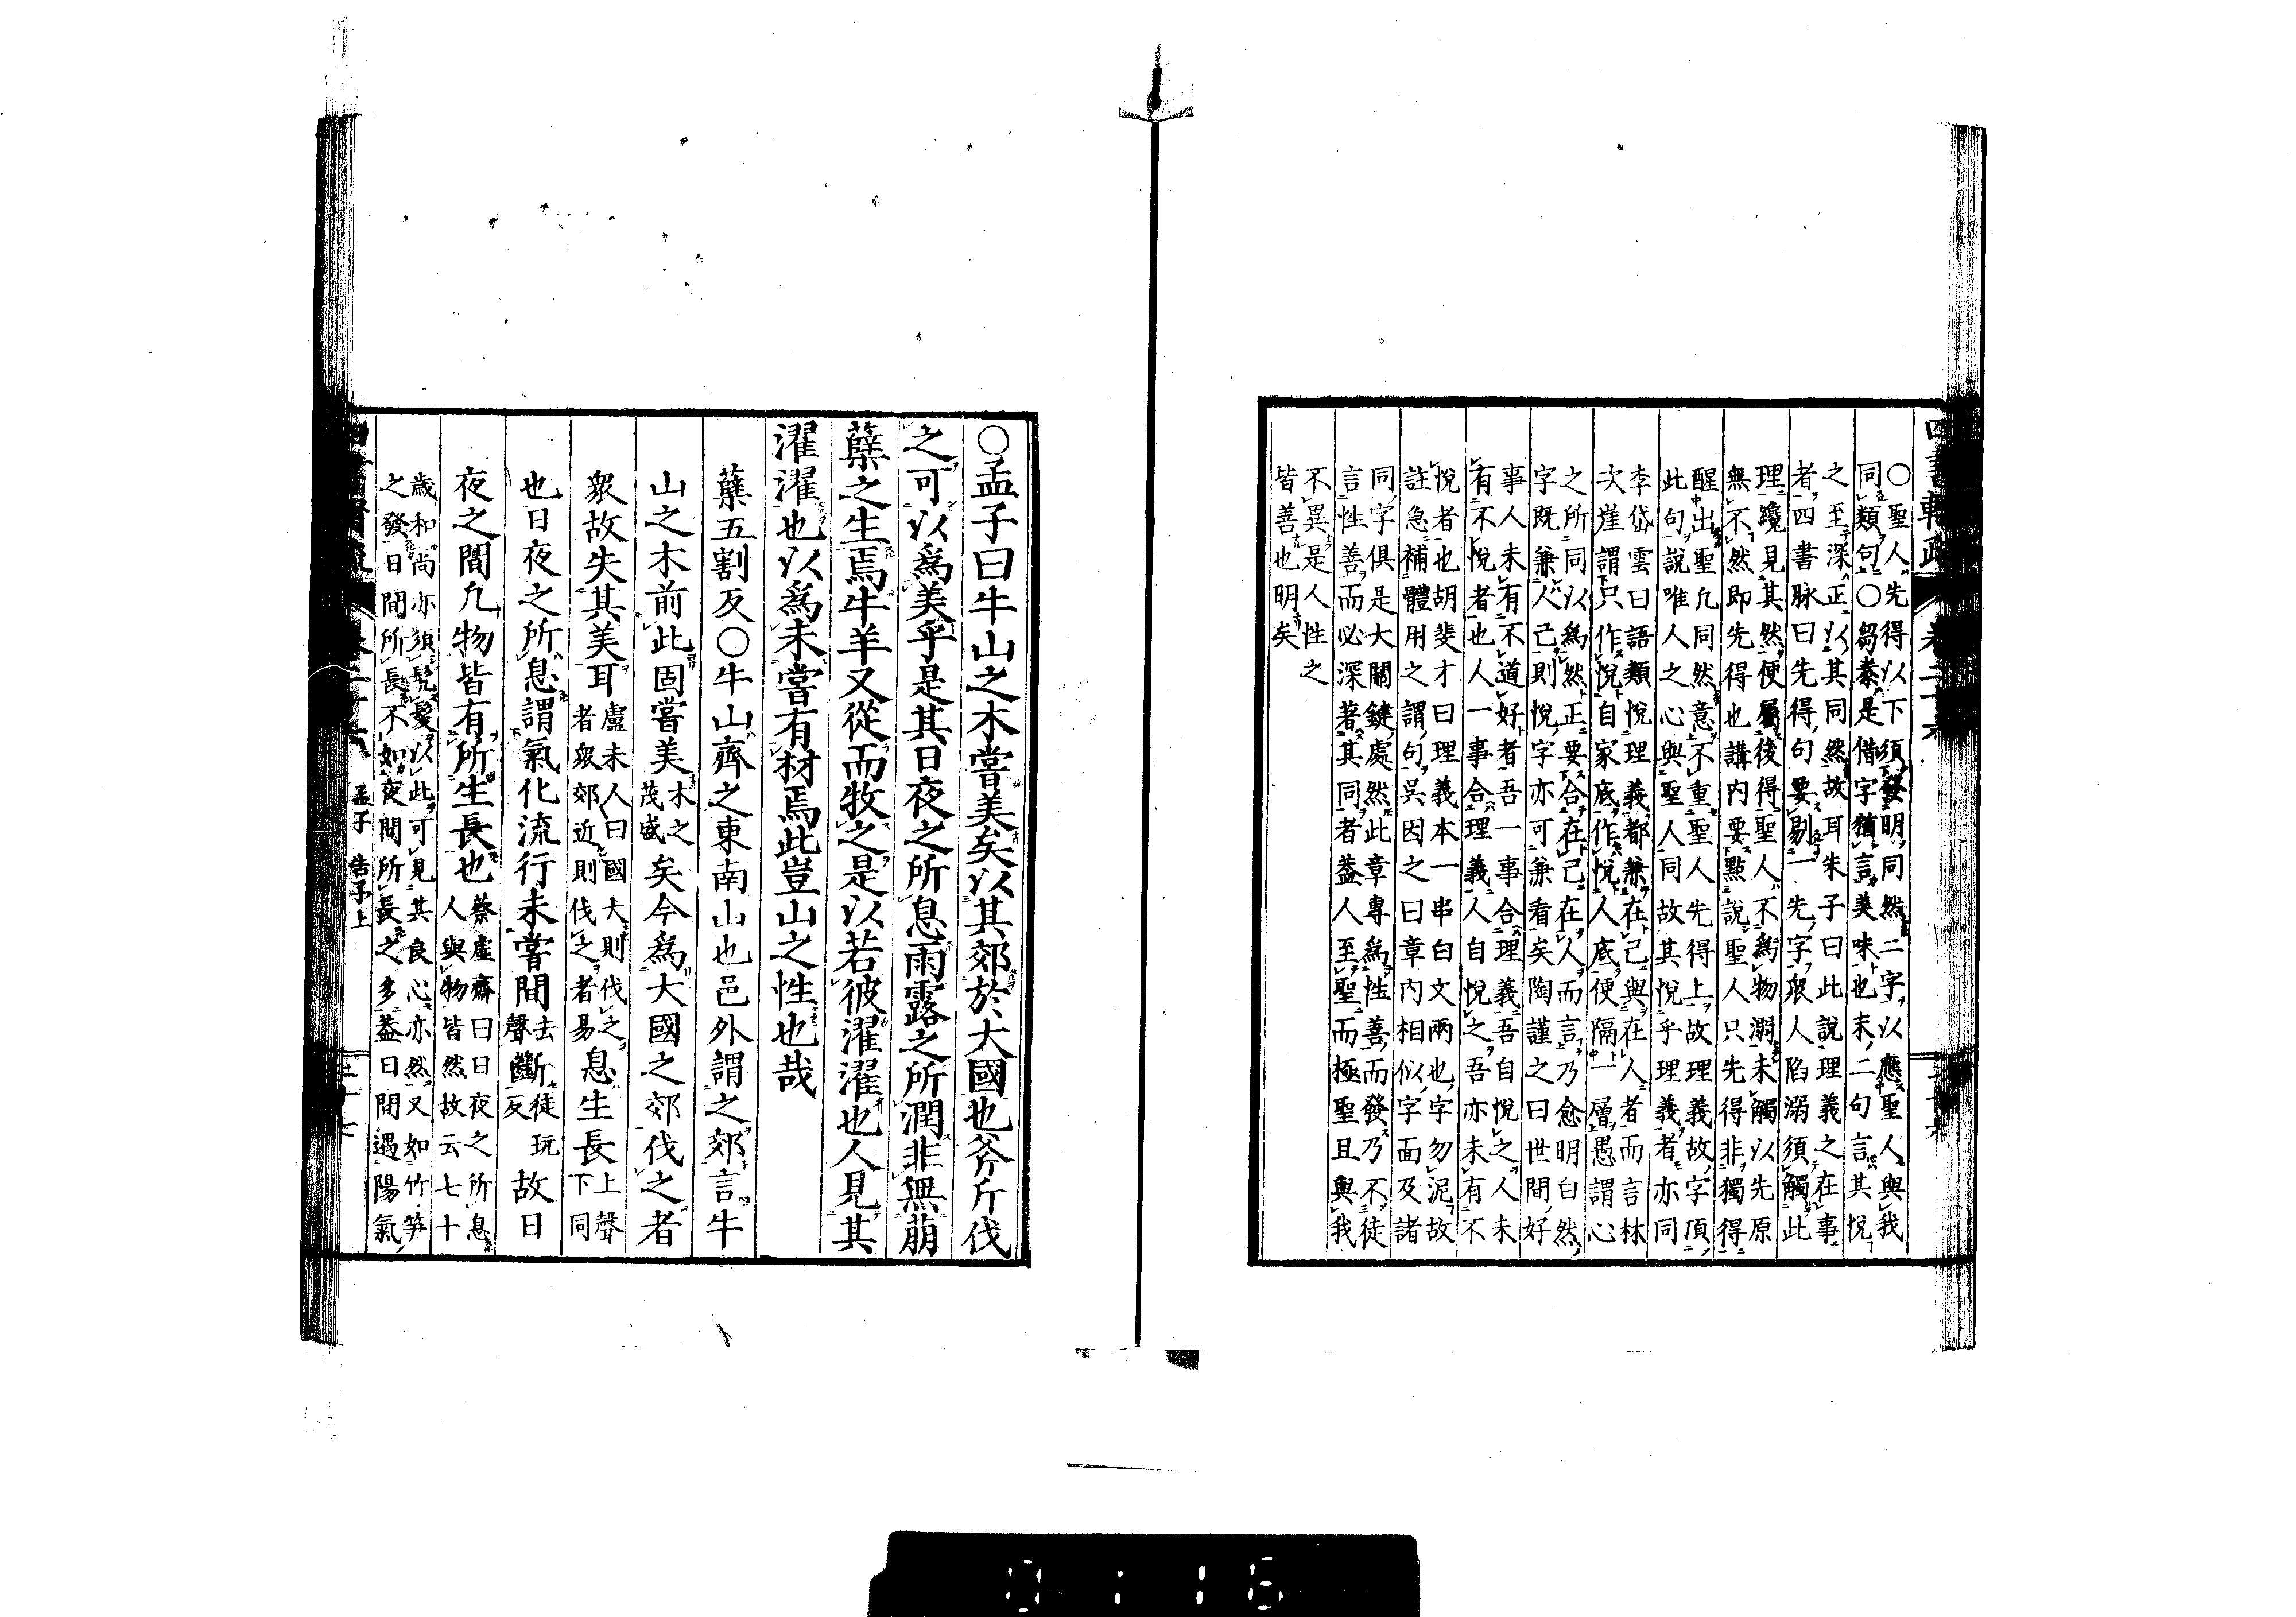 ○聖人先得以下須發明同然二字以應聖人與我
同類句○芻豢是借字猶言美味也末二句言其悅
之至深正以其同然故耳朱子曰此說理義之在事
者四書脉曰先得句要剔一先字衆人陷溺須觸此
理纔見其然便屬後得聖人不爲物溺未觸以先原
無不然即先得也講内要點說聖人只先得非獨得
醒出聖凢同然意不重聖人先得上故理義故字頂
此句說唯人之心與聖人同故其悅乎理義者亦同
李岱雲曰語類悅理義都兼在己與在人者而言林
次崖謂只作悅自家底作悅人底便隔一層愚謂心
之所同以爲然正要合在己在人而言乃愈明白然
字既兼人己則悅字亦可兼看矣陶謹之曰世間好
事人未有不道好者吾一事合理義吾自悅之人未
有不悅者也人一事合理義人自悅之吾亦未有不
悅者也胡斐才曰理義本一串白文兩也字勿泥故
註急補體用之謂句呉因之曰章内相似字面及諸
同字俱是大關鍵處然此章專爲性善而發乃不徒
言性善而必深著其同者葢人至聖而極聖且與我
不異是人性之
皆善也明矣
○孟子曰牛山之木嘗美矣以其郊於大國也斧斤伐
之可以爲美乎是其日夜之所息雨露之所潤非無萠
蘖之生焉牛羊又從而牧之是以若彼濯濯也人見其
濯濯也以爲未嘗有材焉此豈山之性也哉
蘖五割反○牛山齊之東南山也邑外謂之郊言牛
山之木前此固嘗美木之茂盛矣今爲大國之郊伐之者
衆故失其美耳盧未人曰國大則伐之者衆郊近則伐之者易息生長上聲下同
也日夜之所息謂氣化流行未嘗間去聲斷徒玩反故日
夜之間凢物皆有所生長也蔡虛齋曰日夜之所息人與物皆然故云七十
歳和尚亦須髠髮以此可見其良心亦然又如竹笋
之發日間所長不如夜間所長之多葢日間遇陽氣
孟子 告子上